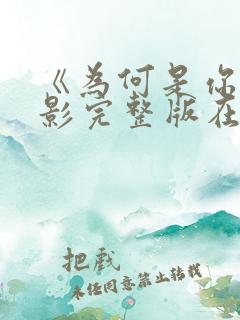 《为何是你
影完整版在
把戲
未经同意禁止转载